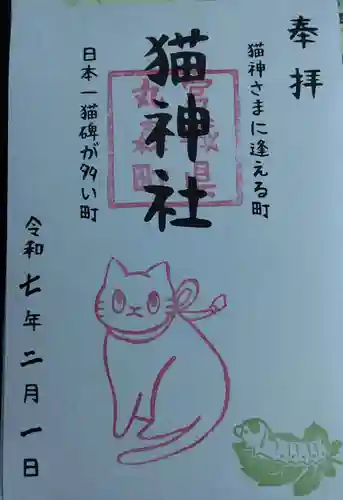 奉拝
猫神さまに逢える町
宮城県
丸森町
猫神社
日本一猫碑が多い町
令和七年二月一日